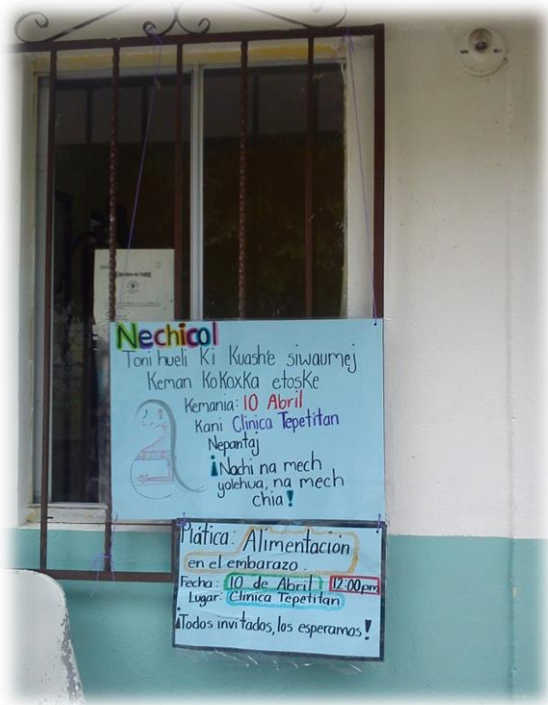 Nechicol
Toni hueli Ki Kuashe siwaumej
Keman KoKoxKa etoske
Kemania: 10 Abril
Kani Clinica Tepetitan
Nepantaj
¡Nachi na mech
yolehua, na mech
chia!
Plática: Alimentación
en el embarazo.
Fecha: 10 de Abril 12:00pm
Lugar: Clinica Tepetitan
¡Todos invitados, los esperamos!